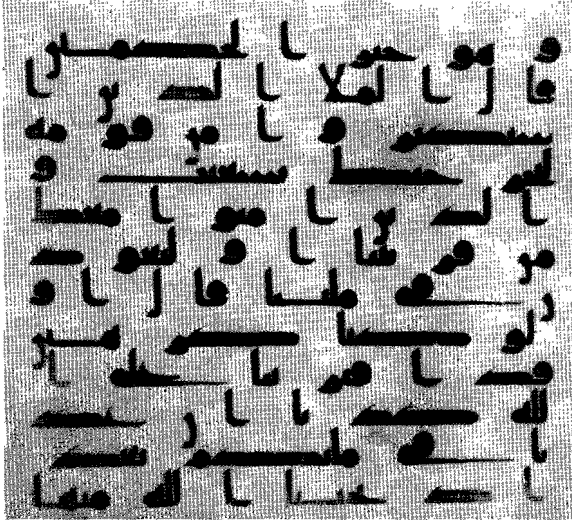 و هو خير ا لحكمين
قا ل ا لملا ا لد ين ا
ستكبر و ا من قو مه
لنخر جنك يشعيب و
ا لد ين ا منو ا معك
من قر يتنا ا و لتعو د
ن في ملتنا قا ل ا و
لو كنا كر هين
قد ا فتر ينا على ا
لله كد با ا ن عد نا
في ملتكم بعد
ا د نجينا ا لله منها